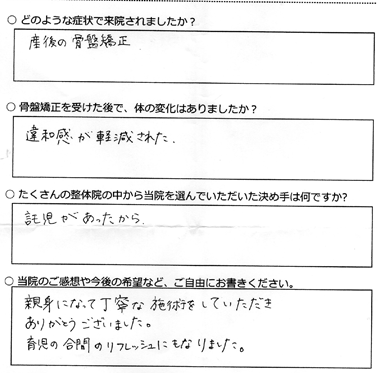 ○ どのような症状で来院されましたか?
産後の骨盤矯正
○ 骨盤矯正を受けた後で、体の変化はありましたか?
違和感が軽減された.
○ たくさんの整体院の中から当院を選んでいただいた決め手は何ですか?
託児があったから.
○ 当院のご感想や今後の希望など、ご自由にお書きください。
親身になって丁寧な施術をしていただき
ありがとうございました。
育児の合間のリフレッシュにもなりました。